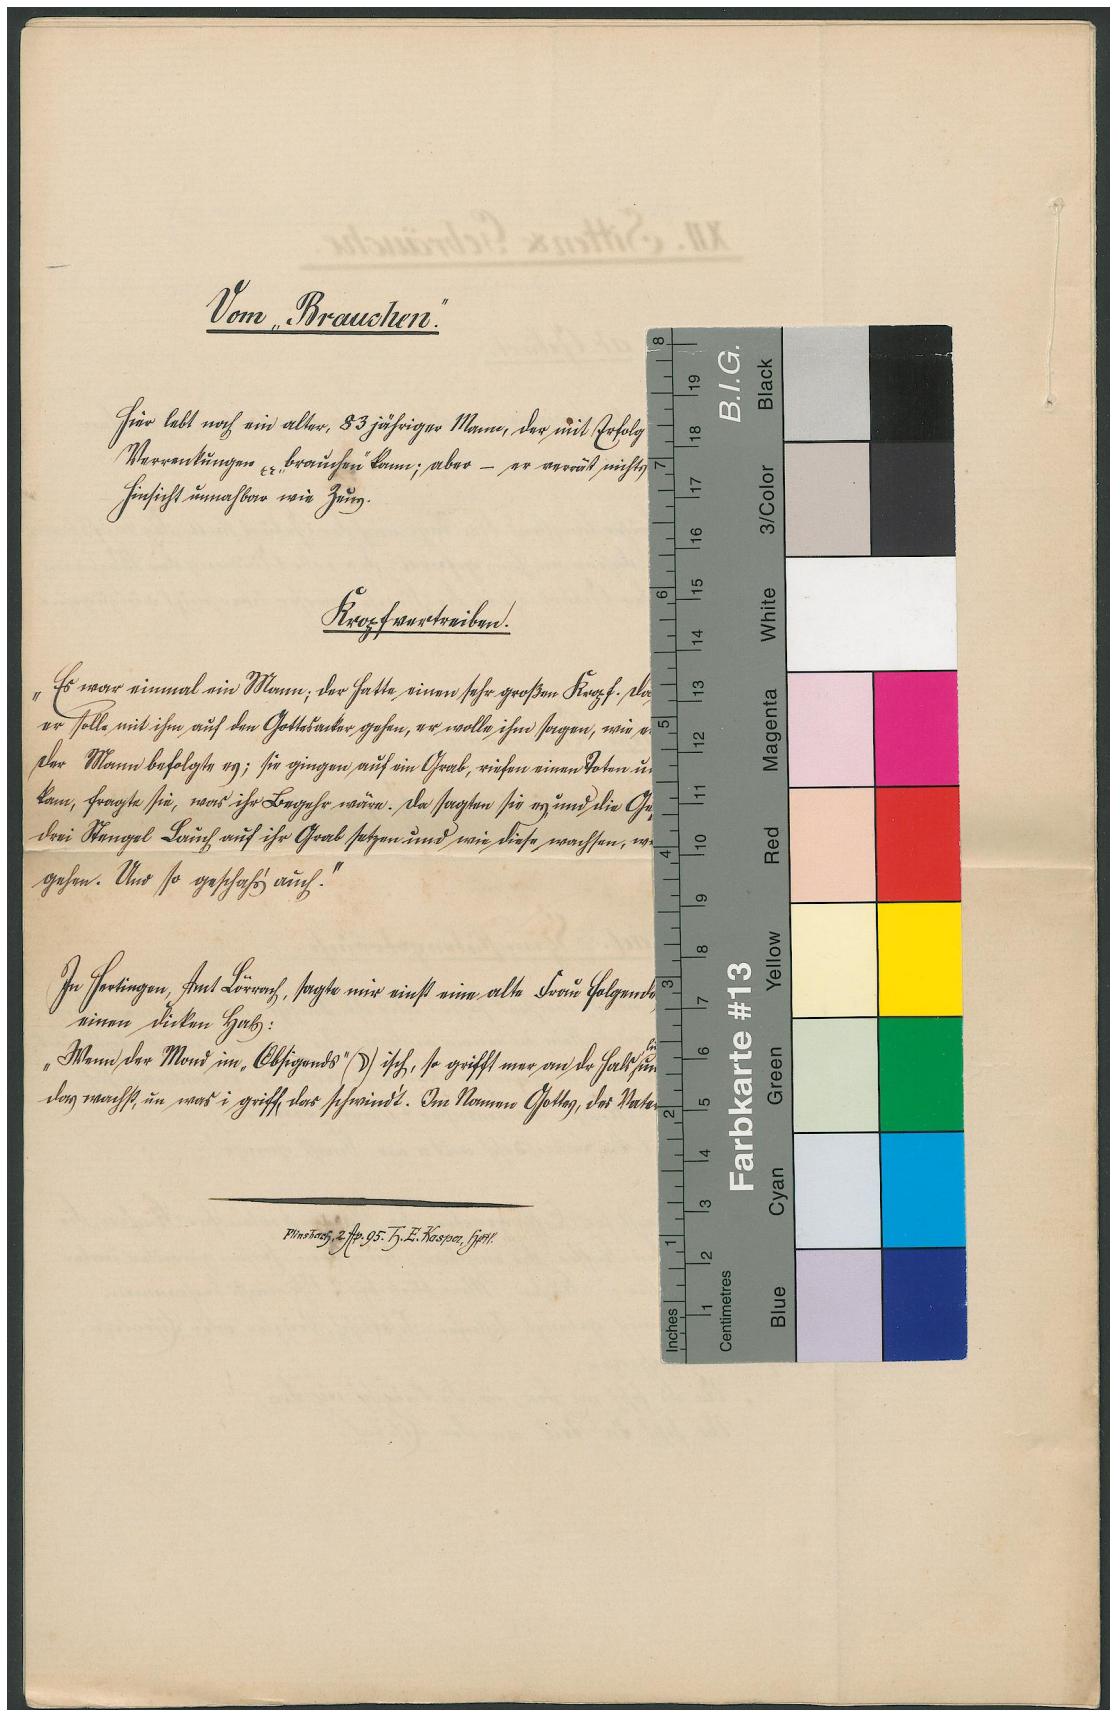 Vom „Brauchen."
Hier lebt noch ein alter, 83 jähriger Mann, der mit Erfolg
Verrenkungen „brauchen" kann; aber – er verrät nichts
Hinsicht unnahbar wie Zeus.
Kropfvertreiben.
„Es war einmal ein Mann; der hatte einen sehr großen Kropf. Da
er solle mit ihm auf den Gottesacker gehen, er wolle ihm sagen, wie
Der Mann befolgte es; sie gingen auf ein Grab, riefen einen Toten
kam, fragte sie, was ihr Begehr wäre. Da sagten sie es und die
drei Stengel Lauch auf ihr Grab setzen und wie diese wachsen,
gehen. Und so geschah's auch."
In Hertingen, Amt Lörrach, sagte mir einst eine alte Frau
einen dicken Hals:
„Wenn der Mond im „Obsigends" isch, so grifft mer an dr Hals
das wachst, un was i griff, das schwindt. Im Namen Gottes, des
2. Ap. 95. Th. E. Kaspar, Hptl.
B.I.G.
Farbkarte #13
Inches 1 2 3 4 5 6 7 8
Centimetres 1 2 3 4 5 6 7 8 9 10 11 12 13 14 15 16 17 18 19
Blue Cyan Green Yellow Red Magenta White 3/Color Black